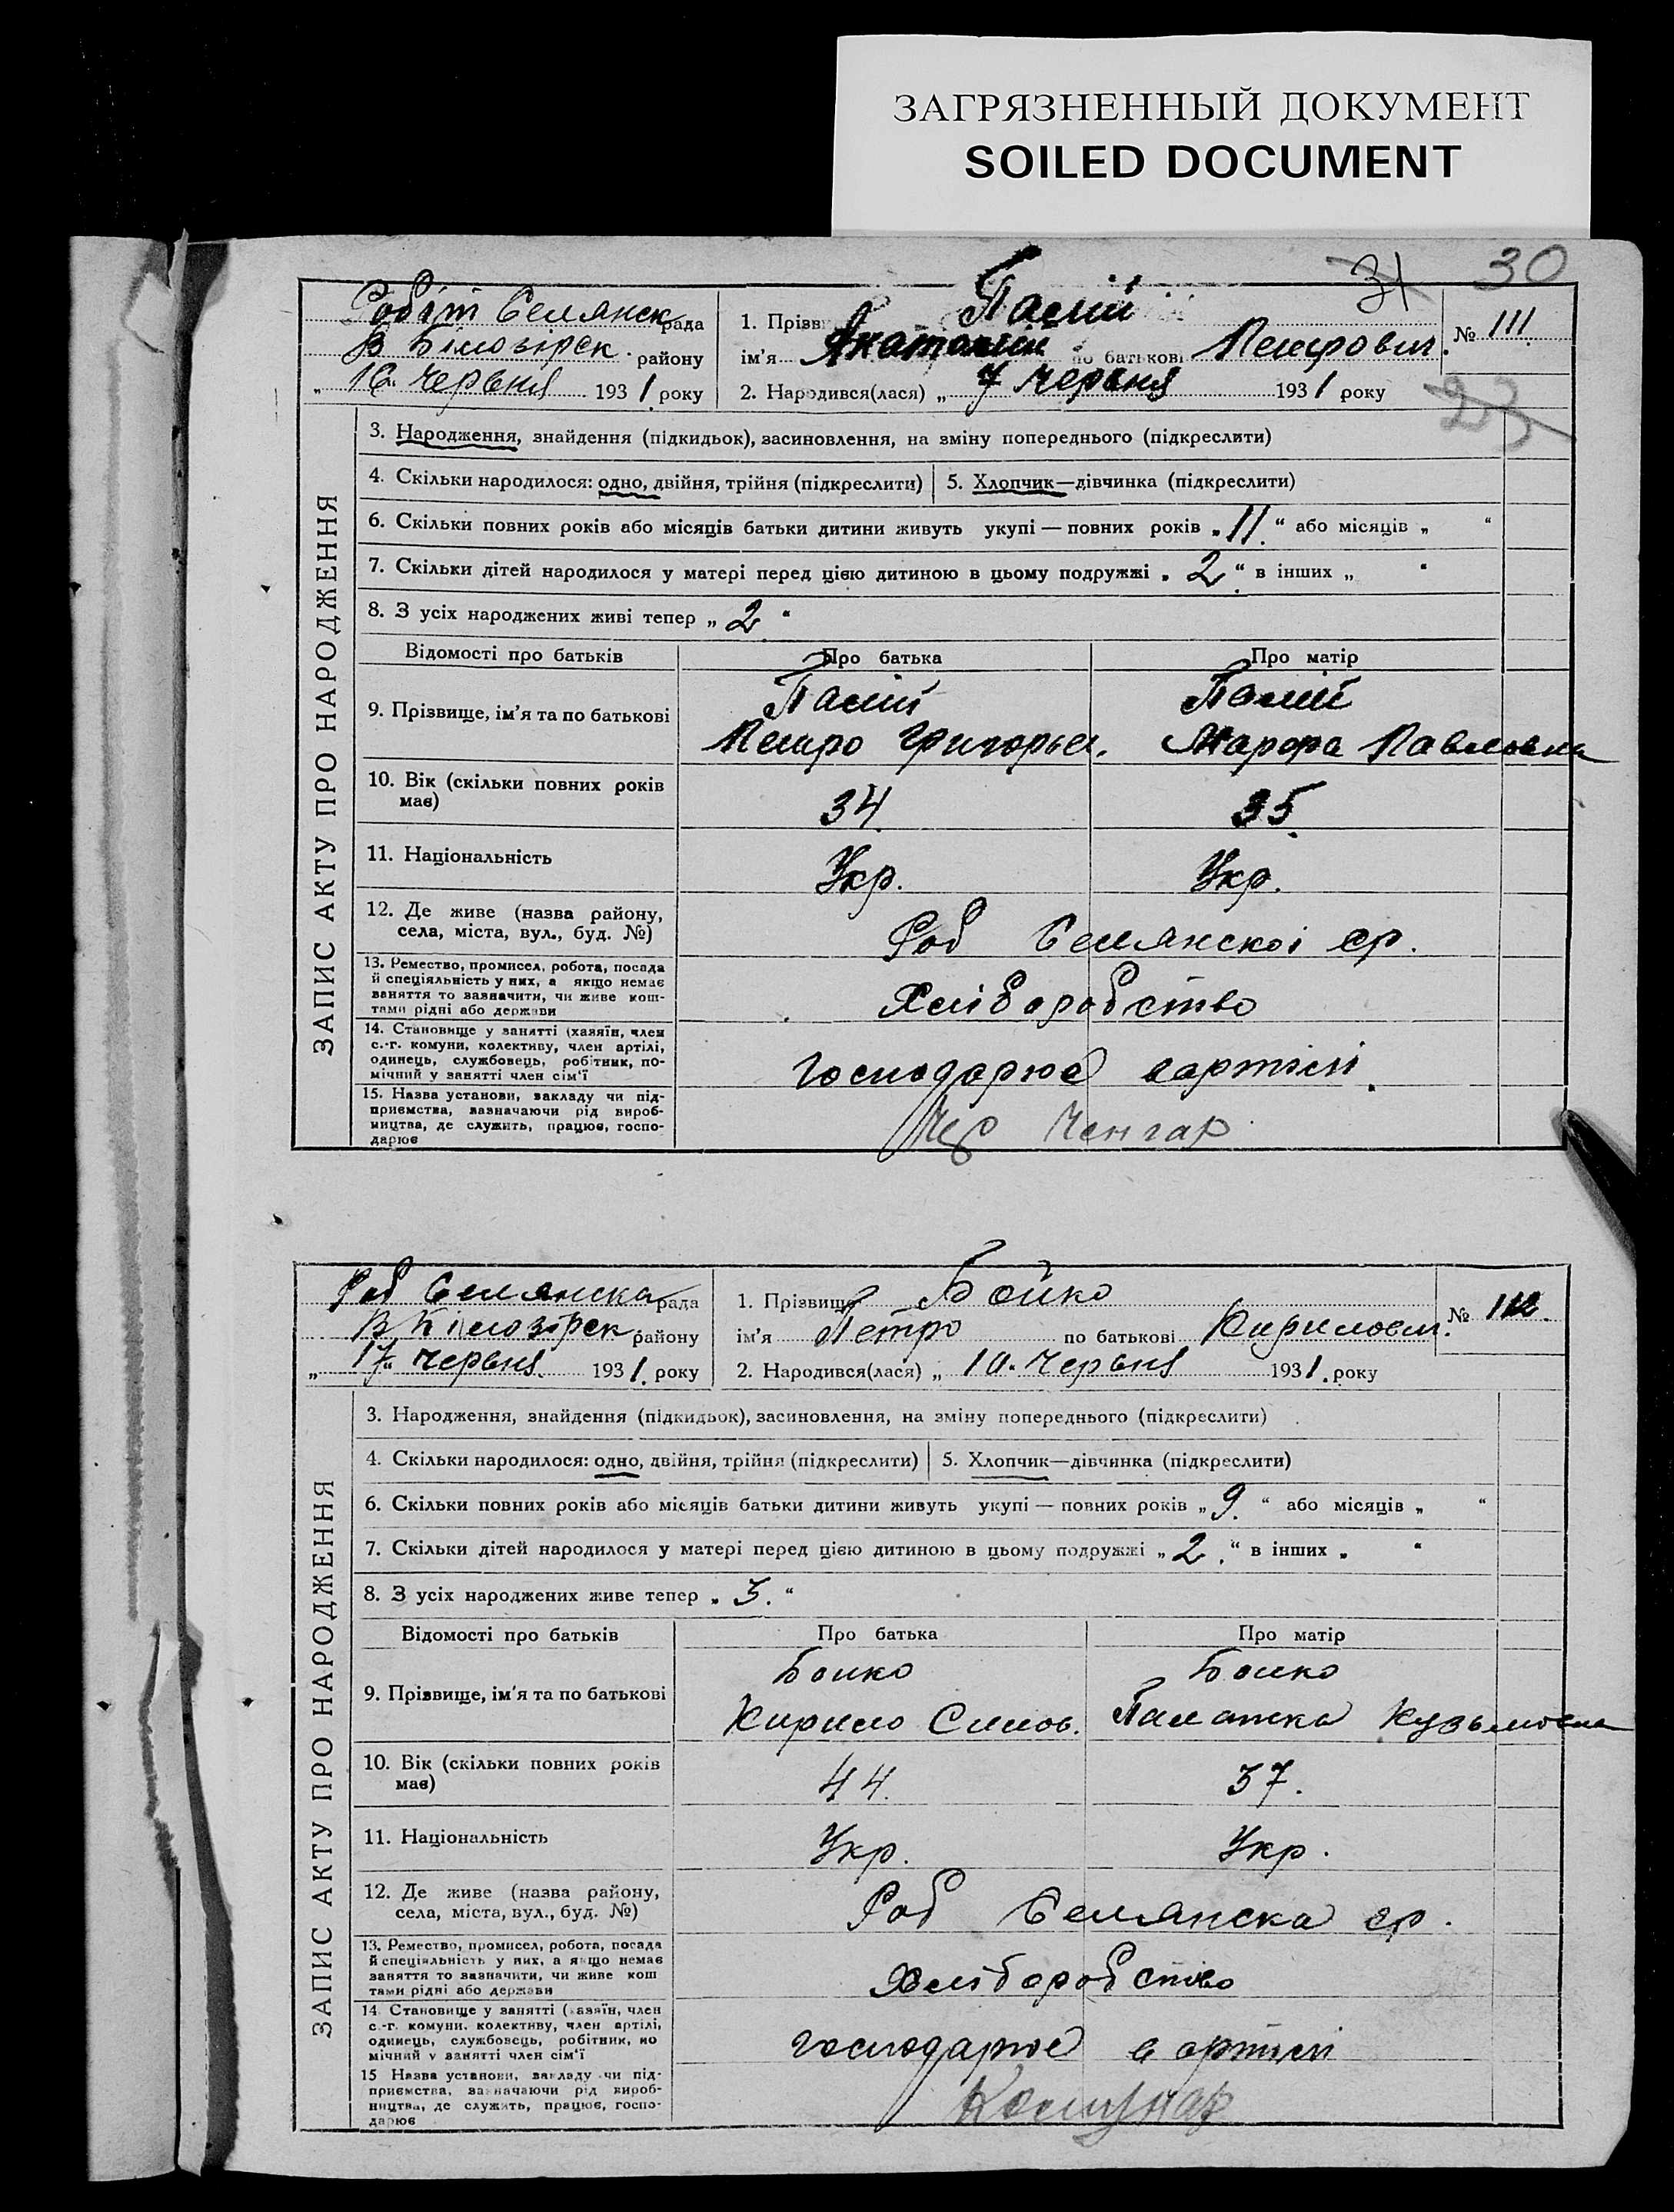 ЗАГРЯЗНЕННЫЙ ДОКУМЕНТ
SOILED DOCUMENT
31 30
Робіт Селянск рада
В Білозірск. району
„ 16 Червня 1931. року
1. Прізв Палій
ім'я Анатолій по батькові Петрович.
№ 111.
2. Народився(лася) „ 7 Червня 1931 року
23
ЗАПИС АКТУ ПРО НАРОДЖЕННЯ
3. Народження, знайдення (підкидьок), засиновлення, на зміну попереднього (підкреслити)
4. Скільки народилося: одно, двійня, трійня (підкреслити) 5. Хлопчик—дівчинка (підкреслити)
6. Скільки повних років або місяців батьки дитини живуть укупі — повних років „11.“ або місяців „ “
7. Скільки дітей народилося у матері перед цією дитиною в цьому подружжі „2.“ в інших „ “
8. З усіх народжених живі тепер „2.“
Відомості про батьків Про батька Про матір
9. Прізвище, ім'я та по батькові
Палій Палій
Петро Григорьев. Марфа Павловна
10. Вік (скільки повних років
має)
34. 35.
11. Національність Укр. Укр.
12. Де живе (назва району,
села, міста, вул., буд. №)
Роб Селянскоі ср.
13. Ремество, промисел, робота, посада
й спеціяльність у них, а якщо немає
заняття то зазначити, чи живе кош-
тами рідні або держави
Хліборобство
14. Становище у занятті (хазяїн, член
с.-г. комуни, колективу, член артілі,
одинець, службовець, робітник, по-
мічний у занятті член сім'ї
Господарює вартілі.
15. Назва установи, закладу чи під-
приємства, зазначаючи рід вироб-
ництва, де служить, працює, госпо-
дарює
Чер Ченгар
Роб Селянска рада
В Білозірск. району
„ 17 Червня. 1931. року
1. Прізвище Бойко
ім'я Петро по батькові Кирилович.
№ 112.
2. Народився(лася) „ 10. Червня 1931. року
ЗАПИС АКТУ ПРО НАРОДЖЕННЯ
3. Народження, знайдення (підкидьок), засиновлення, на зміну попереднього (підкреслити)
4. Скільки народилося: одно, двійня, трійня (підкреслити) 5. Хлопчик—дівчинка (підкреслити)
6. Скільки повних років або місяців батьки дитини живуть укупі — повних років „9.“ або місяців „ “
7. Скільки дітей народилося у матері перед цією дитиною в цьому подружжі „2.“ в інших „ “
8. З усіх народжених живе тепер „3.“
Відомості про батьків Про батька Про матір
9. Прізвище, ім'я та по батькові
Бойко Бойко
Кирило Силов. Палажка Кузьмовна
10. Вік (скільки повних років
має)
44. 37.
11. Національність Укр. Укр.
12. Де живе (назва району,
села, міста, вул., буд. №)
Роб Селянска ср.
13. Ремество, промисел, робота, посада
й спеціяльність у них, а якщо немає
заняття то зазначити, чи живе кош
тами рідні або держави
Хліборобство
14. Становище у занятті (хазяїн, член
с.-г. комуни, колективу, член артілі,
одинець, службовець, робітник, по
мічний у занятті член сім'ї
господарює в артілі
15 Назва установи, закладу чи під-
приємства, зазначаючи рід вироб-
ництва, де служить, працює, госпо-
дарює
Комунар